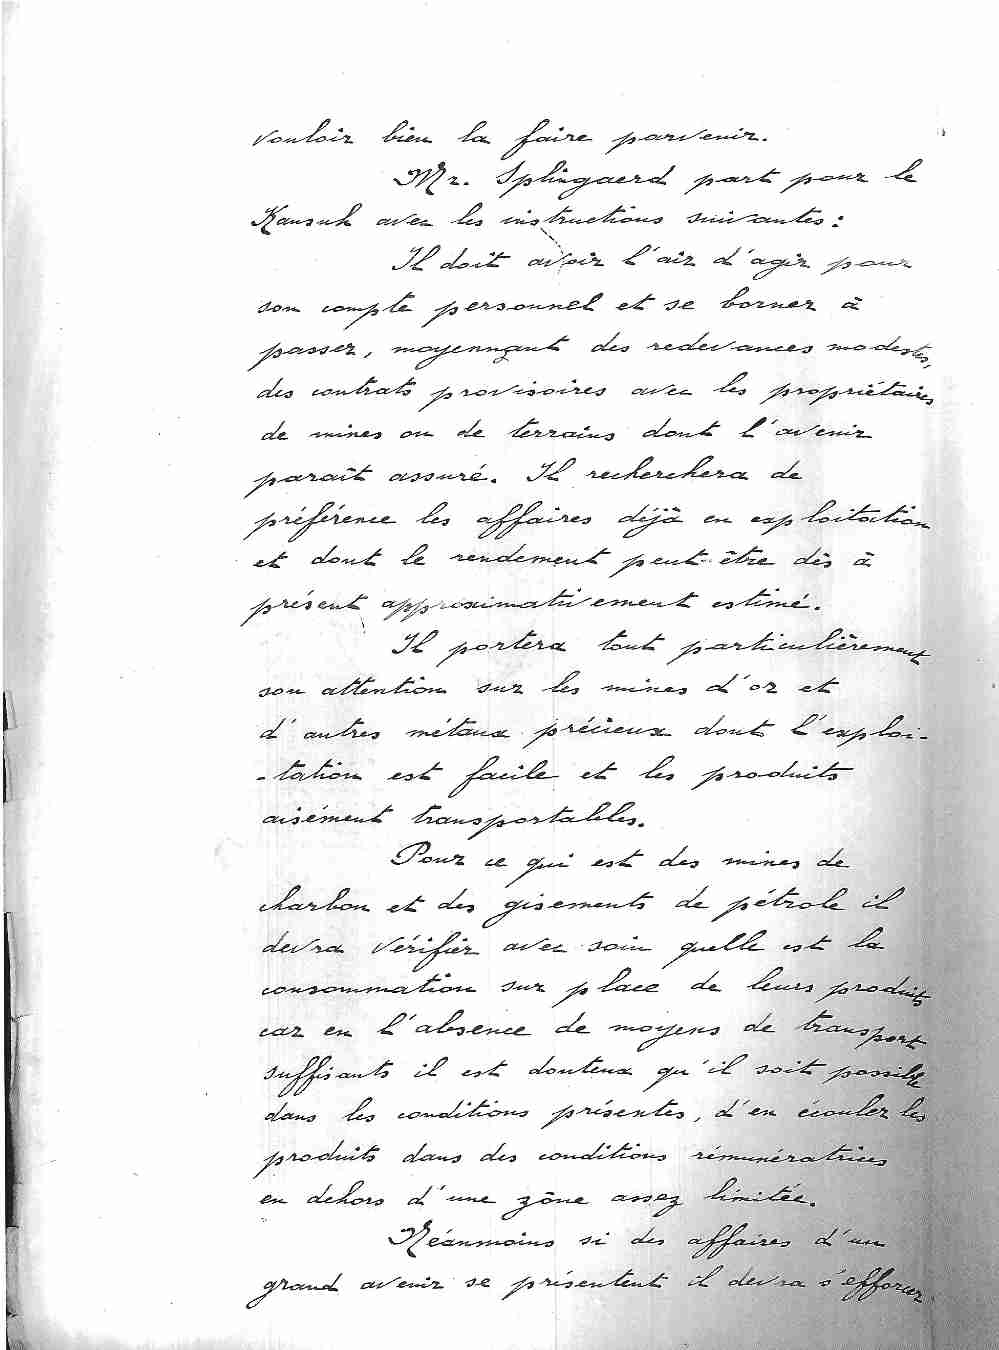 vouloir bien la faire parvenir.
Mr. Splingaerd part pour le
Kansuh avec les instructions suivantes :
Il doit avoir l'air d'agir pour
son compte personnel et se borner à
passer, moyennant des redevances modestes,
des contrats provisoires avec les propriétaires
de mines ou de terrains dont l'avenir
paraît assuré. Il recherchera de
préférence les affaires déjà en exploitation
et dont le rendement peut-être dès à
présent approximativement estimé.
Il portera tout particulièrement
son attention sur les mines d'or et
d'autres métaux précieux dont l'exploi-
-tation est facile et les produits
aisément transportables.
Pour ce qui est des mines de
charbon et des gisements de pétrole il
devra vérifier avec soin quelle est la
consommation sur place de leurs produits
car en l'absence de moyens de transport
suffisants il est douteux qu'il soit possible
dans les conditions présentes, d'en écouler les
produits dans des conditions rémunératrices
en dehors d'une zône assez limitée.
Néanmoins si des affaires d'un
grand avenir se présentent il devra s'efforcer